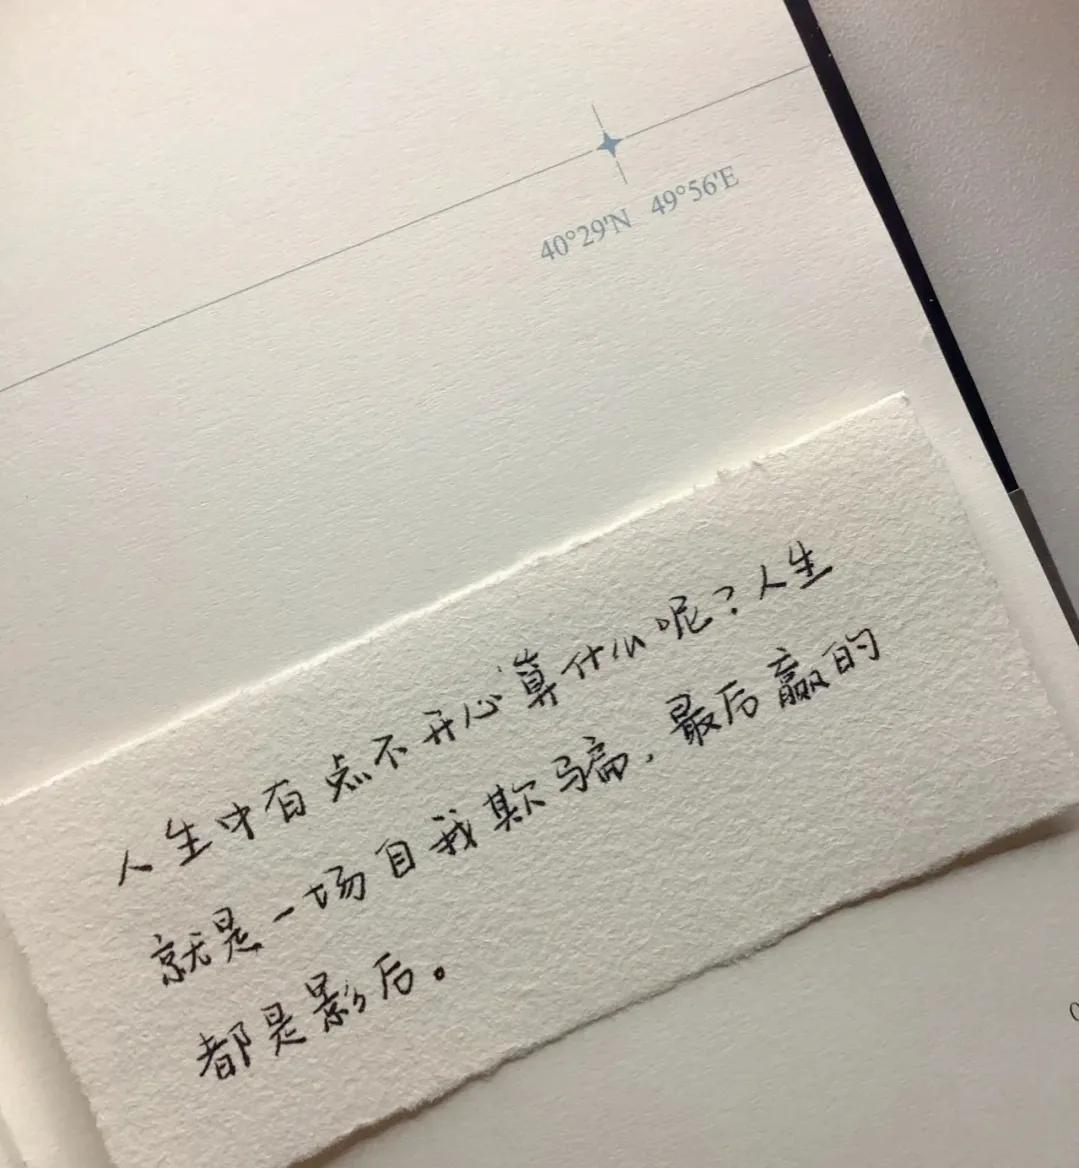 40°29'N 49°56'E
人生中有点不开心算什么呢？人生
就是一场自我欺骗，最后赢的
都是影后。